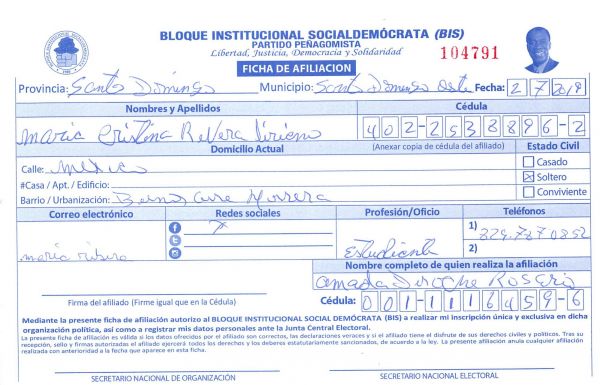 BLOQUE INSTITUCIONAL SOCIALDEMÓCRATA (BIS)
PARTIDO PEÑAGOMISTA
Libertad, Justicia, Democracia y Solidaridad
104791
FICHA DE AFILIACION
Provincia: Santo Domingo Municipio: Santo Domingo Oeste Fecha: 2 7 2019
Nombres y Apellidos Cédula
Maria Cristina Rivera 402-2538896-2
Domicilio Actual (Anexar copia de cédula del afiliado) Estado Civil
Calle: Mexico Casado
#Casa / Apt. / Edificio: Soltero
Barrio / Urbanización: Buenos Aires Herrera Conviviente
Correo electrónico Redes sociales Profesión/Oficio Teléfonos
maria Estudiante 1) 829-787 0852
2)
Nombre completo de quien realiza la afiliación
Amada Rosario
Firma del afiliado (Firme igual que en la Cédula) Cédula: 001-1116459-6
Mediante la presente ficha de afiliación autorizo al BLOQUE INSTITUCIONAL SOCIAL DEMÓCRATA (BIS) a realizar mi inscripción única y exclusiva en dicha
organización política, así como a registrar mis datos personales ante la Junta Central Electoral.
La presente ficha de afiliación es válida si los datos ofrecidos por el afiliado son correctos, las declaraciones veraces y si el afiliado tiene el disfrute de sus derechos civiles y políticos. Tras su
recepción, sello y firmas autorizadas el afiliado ejercerá todos los derechos y los deberes estatutariamente sancionados, de acuerdo a la ley. La presente afiliación anula cualquier afiliación
realizada con anterioridad a la fecha que aparece en esta ficha.
SECRETARIO NACIONAL DE ORGANIZACIÓN SECRETARIO NACIONAL ELECTORAL